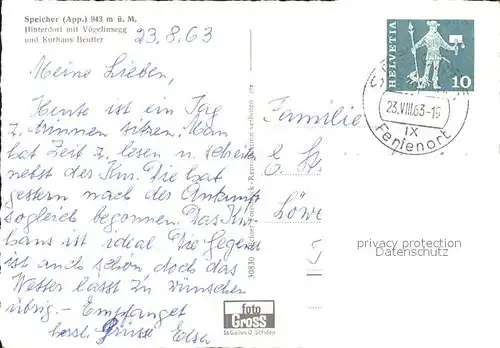 Speicher (App.) 943 m ü. M.
Hinterdorf mit Vögelinsegg
und Kurhaus Beutler
23.8.63
Meine Lieben,
Heute ist ein Tag
z. drinnen sitzen. Man
hat Zeit z. lesen u. schreiben
nebst der Kur. Die hat
gestern nach der Ankunft
sogleich begonnen. Das Kur-
haus ist ideal. Die Gegend
ist auch schön doch das
Wetter lässt zu wünschen
übrig. – Empfanget
herzl. Grüsse Elsa
30830
foto
Gross
St.Gallen O St.Fiden
Familie
E. St
Löwe
HELVETIA
10
23.VIII.63-19
IX
Ferienort
privacy protection
Datenschutz